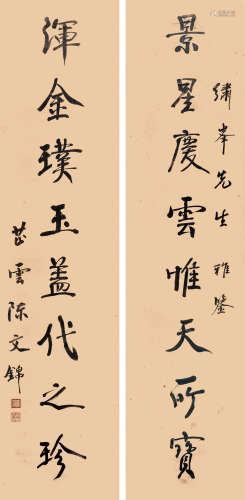 繡峯先生雅鑒
景星慶雲惟天所寶
渾金璞玉蓋代之珍
芷雲陳文錦